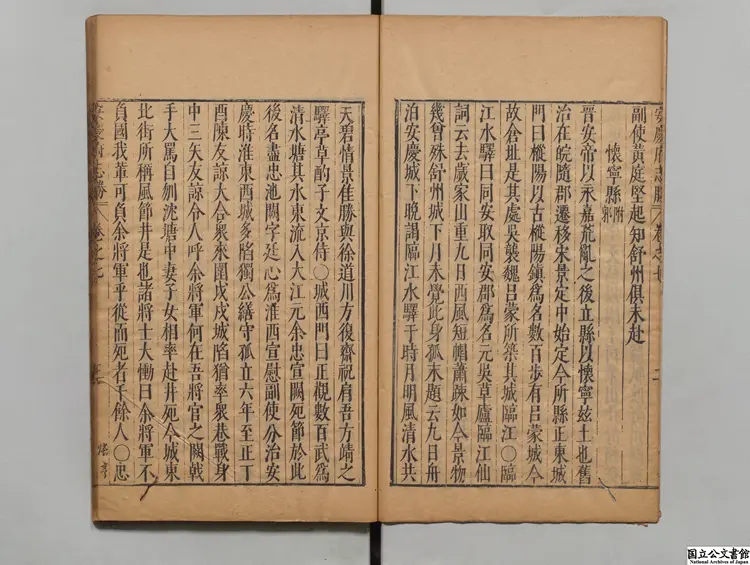 副使黃庭堅起知舒州俱未赴
懷寧縣附郭
晉安帝以永嘉荒亂之後立縣以懷寧兹土也舊
治在皖隨郡遷移宋景定中始定今所縣正東城
門曰樅陽以古樅陽鎮爲名數百步有呂蒙城今
故倉址是其處吳襲魏呂蒙所築其城臨江○臨
江水驛曰同安取同安郡爲名元吳草廬臨江仙
詞云去歲家山重九日西風短帽蕭疎如今景物
幾曾殊舒州城下月未覺此身孤末題云九日舟
泊安慶城下晚謁臨江水驛于時月明風清水共
天碧情景佳勝與徐道川方復齋祝肩吾方靖之
驛亭草酌子文京侍○城西門曰正觀數百武爲
清水塘其水東流入大江元余忠宣闕死節於此
後名盡忠池闕字廷心爲淮西宣慰副使分治安
慶時淮東西城多陷獨公繕守孤立六年至正丁
酉陳友諒大合衆來圍戊戌城陷猶率衆巷戰身
中三矢友諒令人呼余將軍何在吾將官之闕戟
手大罵自刎沈塘中妻子女相率赴井死今城東
北街所稱風節井是也諸將士大慟曰余將軍不
負國我輩可負余將軍乎從而死者千餘人○忠
安慶府志勝
卷之七
二
国立公文書館
National Archives of Japan